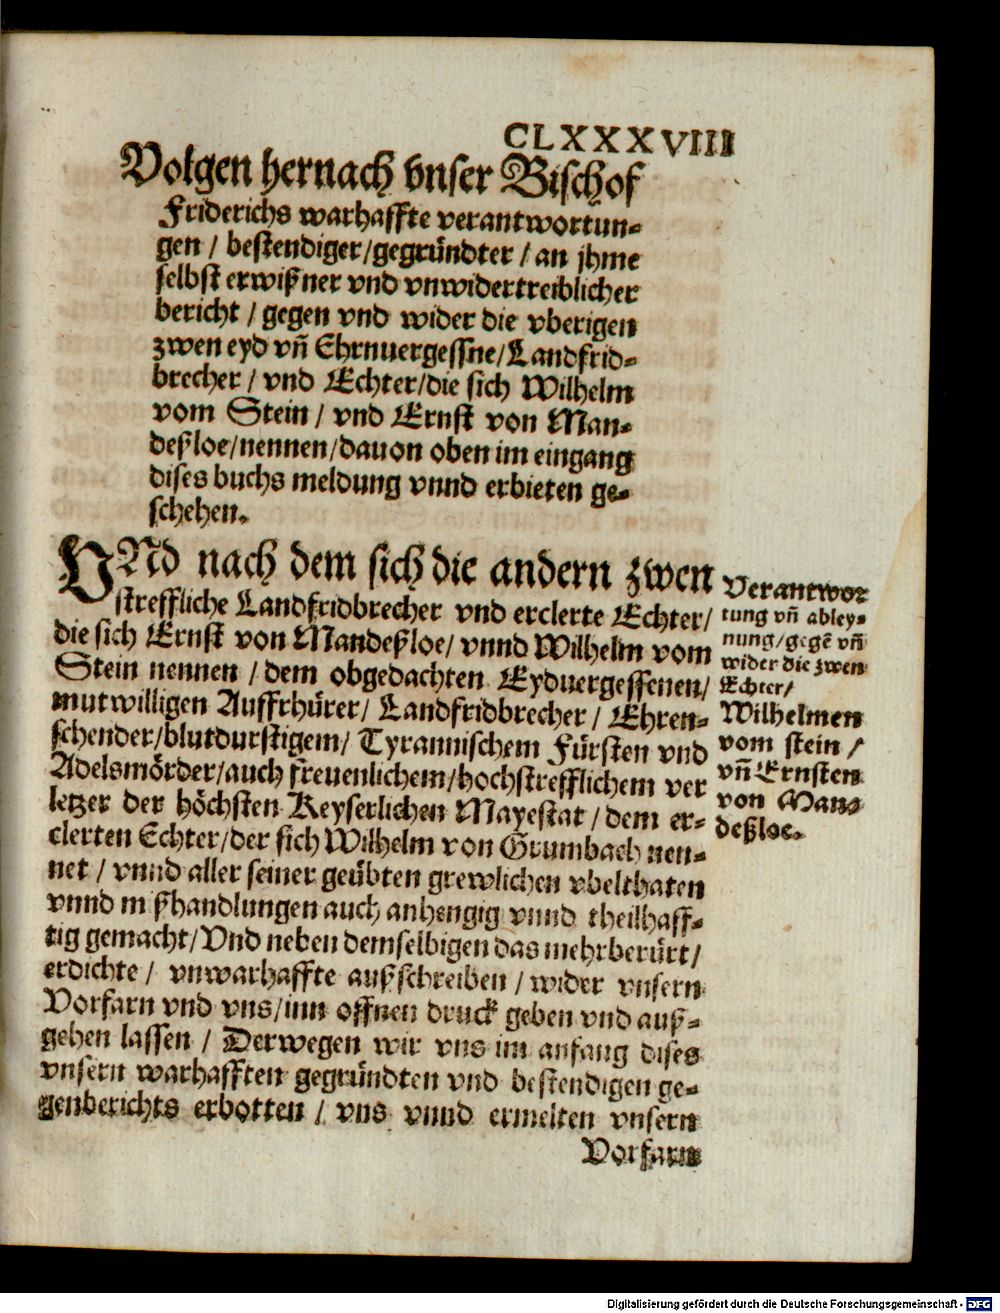 CLXXXVIII
Volgen hernach vnser Bischof
Friderichs warhaffte verantwortun-
gen / bestendiger/gegründter / an jhme
selbst erwißner vnd vnwidertreiblicher
bericht / gegen vnd wider die vberigen
zwen eyd vñ Ehrnuergessne/Landfrid-
brecher / vnd Echter/die sich Wilhelm
vom Stein / vnd Ernst von Man-
deßloe/nennen/dauon oben im eingang
dises buchs meldung vnnd erbieten ge-
schehen.
VNd nach dem sich die andern zwen
streffliche Landfridbrecher vnd erclerte Echter/
die sich Ernst von Mandeßloe/ vnnd Wilhelm vom
Stein nennen / dem obgedachten Eyduergessenen/
mutwilligen Auffrhürer/ Landfridbrecher / Ehren-
schender/blutdurstigem/ Tyrannischem Fürsten vnd
Adelsmörder/auch freuenlichem/hochstrefflichem ver
letzer der höchsten Keyserlichen Mayestat / dem er-
clerten Echter/der sich Wilhelm von Grumbach nen-
net / vnnd aller seiner geübten grewlichen vbelthaten
vnnd mißhandlungen auch anhengig vnnd theilhaff-
tig gemacht/Vnd neben demselbigen das mehrberürt/
erdichte / vnwarhaffte außschreiben / wider vnsern
Vorfarn vnd vns/inn offnen druck geben vnd auß-
gehen lassen / Derwegen wir vns im anfang dises
vnsern warhafften gegründten vnd bestendigen ge-
genberichts erbotten / vns vnnd ermelten vnsern
Vorfarn
Verantwor
tung vñ abley-
nung/gegē vñ
wider die zwen
Echter/
Wilhelmen
vom stein /
vñ Ernsten
von Man-
deßloe.
Digitalisierung gefördert durch die Deutsche Forschungsgemeinschaft - DFG